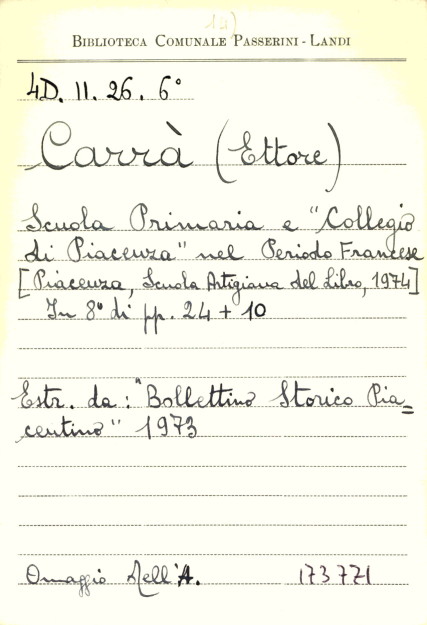 BIBLIOTECA COMUNALE PASSERINI - LANDI
4D. II. 26. 6°
Carrà (Ettore)
Scuola Primaria e "Collegio
di Piacenza" nel Periodo Francese
[Piacenza, Scuola Artigiana del Libro, 1974]
In 8° di pp. 24 + 10
Estr. da: "Bollettino Storico Pia=
centino" 1973
Omaggio dell'A. 173771